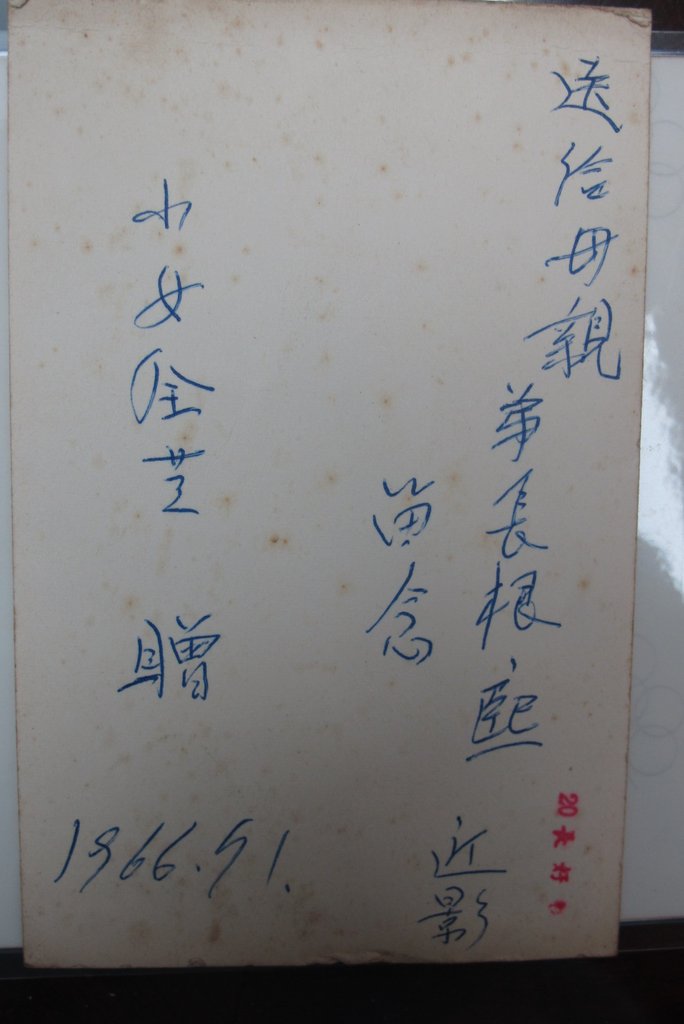 送给母親
弟長根、熙
近影
留念
小女全芝 贈
1966.9.1.
20